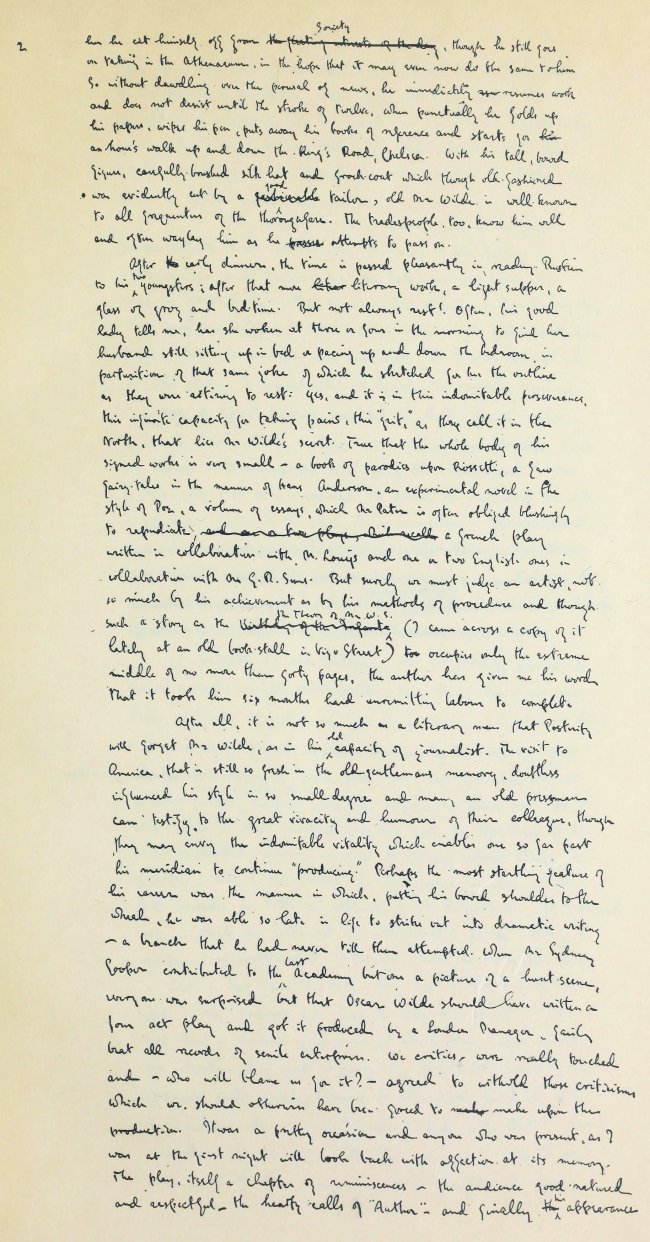 Society
2 has he cut himself off from the fleeting interests of the day, though he still goes
on taking in the Athenaeum, in the hope that it may even now do the same to him
So without dawdling over the perusal of news, he immediately resumes work
and does not desist until the stroke of twelve, when punctually he folds up
his papers, wipes his pen, puts away his books of reference and starts for his
an hour's walk up and down the King's Road, Chelsea. With his tall, bowed
figure, carefully-brushed silk hat and frock-coat which though old-fashioned
good
was evidently cut by a fashionable tailor, old Mr Wilde is well-known
to all frequenters of the thoroughfare. The tradespeople, too, know him well
and often waylay him as he passes attempts to pass on.
After early dinner, the time is passed pleasantly in reading Ruskin
two
to his youngsters; after that more literary work, a light supper, a
glass of grog and bed-time. But not always rest! Often, his good
lady tells me, has she woken at three or four in the morning to find her
husband still sitting up in bed or pacing up and down the bedroom, in
parturition of that same joke of which he sketched for her the outline
as they were retiring to rest: yes, and it is in this indomitable perseverance,
this infinite capacity for taking pains, this "grit," as they call it in the
North, that lies Mr Wilde's secret. True that the whole body of his
signed works is very small — a book of parodies upon Rossetti, a few
fairy-tales in the manner of Hans Anderson, an experimental novel in the
style of Poe, a volume of essays, which Mr Pater is often obliged blushingly
to repudiate, and one or two plays, which a French play
written in collaboration with M. Louÿs and one or two English ones in
collaboration with Mr G.R. Sims. But surely we must judge an artist, not
so much by his achievement as by his methods of procedure and though
The Theory of Mr W. S.
such a story as the Birthday of the Infanta (I came across a copy of it
lately at an old book-stall in Vigo Street) occupies only the extreme
middle of no more than forty pages, the author has given me his word
that it took him six months hard unremitting labour to complete.
After all, it is not so much as a literary man that Posterity
old
will forget Mr Wilde, as in his capacity of journalist. The visit to
America, that is still so fresh in the old gentleman's memory, doubtless
influenced his style in no small degree and many an old pressman
can testify to the great vivacity and humour of their colleague, though
they may envy the indomitable vitality which enables one so far past
his meridian to continue "producing." Perhaps the most startling feature of
his career was the manner in which, putting his bowed shoulder to the
wheel, he was able so late in life to strike out into dramatic writing
— a branch that he had never till then attempted. When Mr Sydney
last
Cooper contributed to the Academy but one a picture of a hunt-scene,
everyone was surprised but that Oscar Wilde should have written a
four act play and got it produced by a London Manager, fairly
beat all records of senile enterprise. We critics, were really touched
and — who will blame us for it? — agreed to withold those criticisms
which we should otherwise have been forced to make make upon the
production. It was a pretty occasion and anyone who was present, as I
was at the first night will look back with affection at its memory.
The play, itself a chapter of reminiscences — the audience good-natured
his
and respectful — the hearty calls of "Author" — and finally the appearance